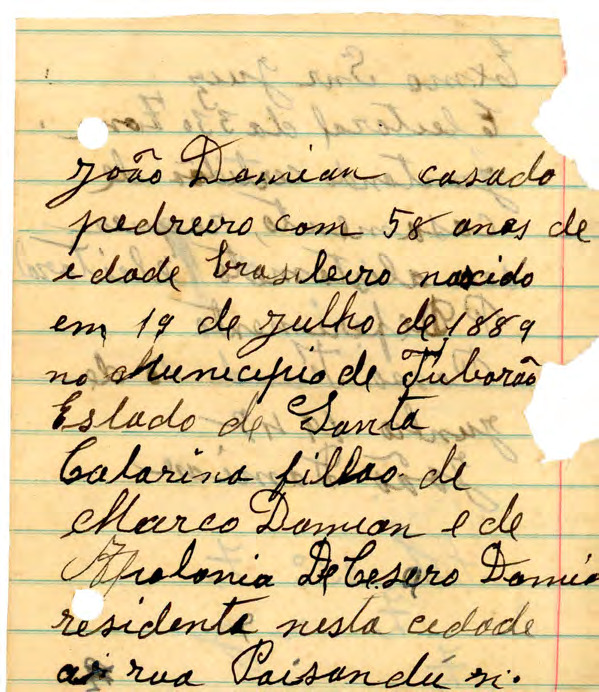 João Damian casado
pedreiro com 58 anos de
idade brasileiro nascido
em 19 de julho de 1889
no Municipio de Tubarão
Estado de Santa
Catarina filho de
Marco Damian e de
Apolonia De Cesaro Damia
residente nesta cidade
a rua Paisandú n.